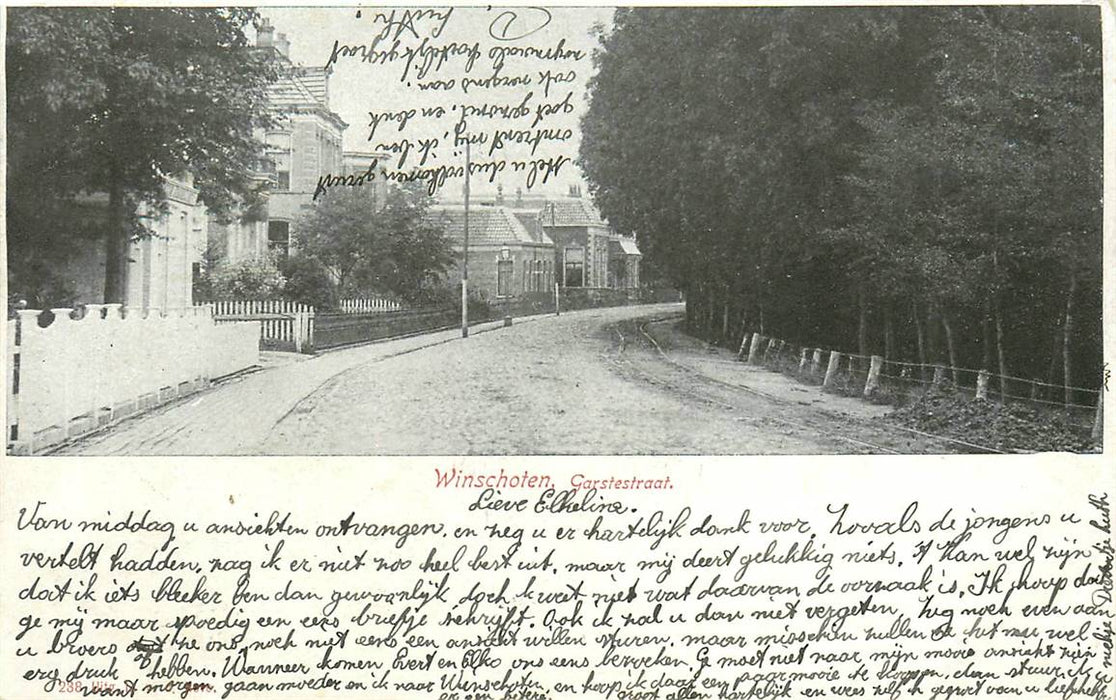 Winschoten, Garstestraat.
Lieve Elkeline.
Van middag u ansichten ontvangen, en zeg u er hartelijk dank voor. Zooals de jongens u
vertelt hadden, zag ik er niet zoo heel best uit, maar mij deert gelukkig niets. 't Kan wel zijn
dat ik iets bleeker ben dan gewoonlijk doch ik weet niet wat daarvan de oorzaak is. Ik hoop dat
ge mij maar spoedig een eens briefje schrijft. Ook ik zal u dan niet vergeten. Zeg noch even aan
u broers of ze ons noch niet eens een ansicht willen sturen, maar misschien zullen ze het nu wel
erg druk hebben. Wanneer komen Evert en Elko ons eens bezoeken. Ge moet niet naar mijn mooie ansicht zijn
want morgen gaan moeder en ik naar Winschoten, en hoop ik daar een paar mooie te koopen, dan stuur ik
er een betere. groet allen hartelijk en wees zelf gegroet van
Stel u dus volkomen gerust
omtrent mij, ik ben
goet gezond, en denk
ook nergens aan.
nogmaals hartelijk gegroet
238